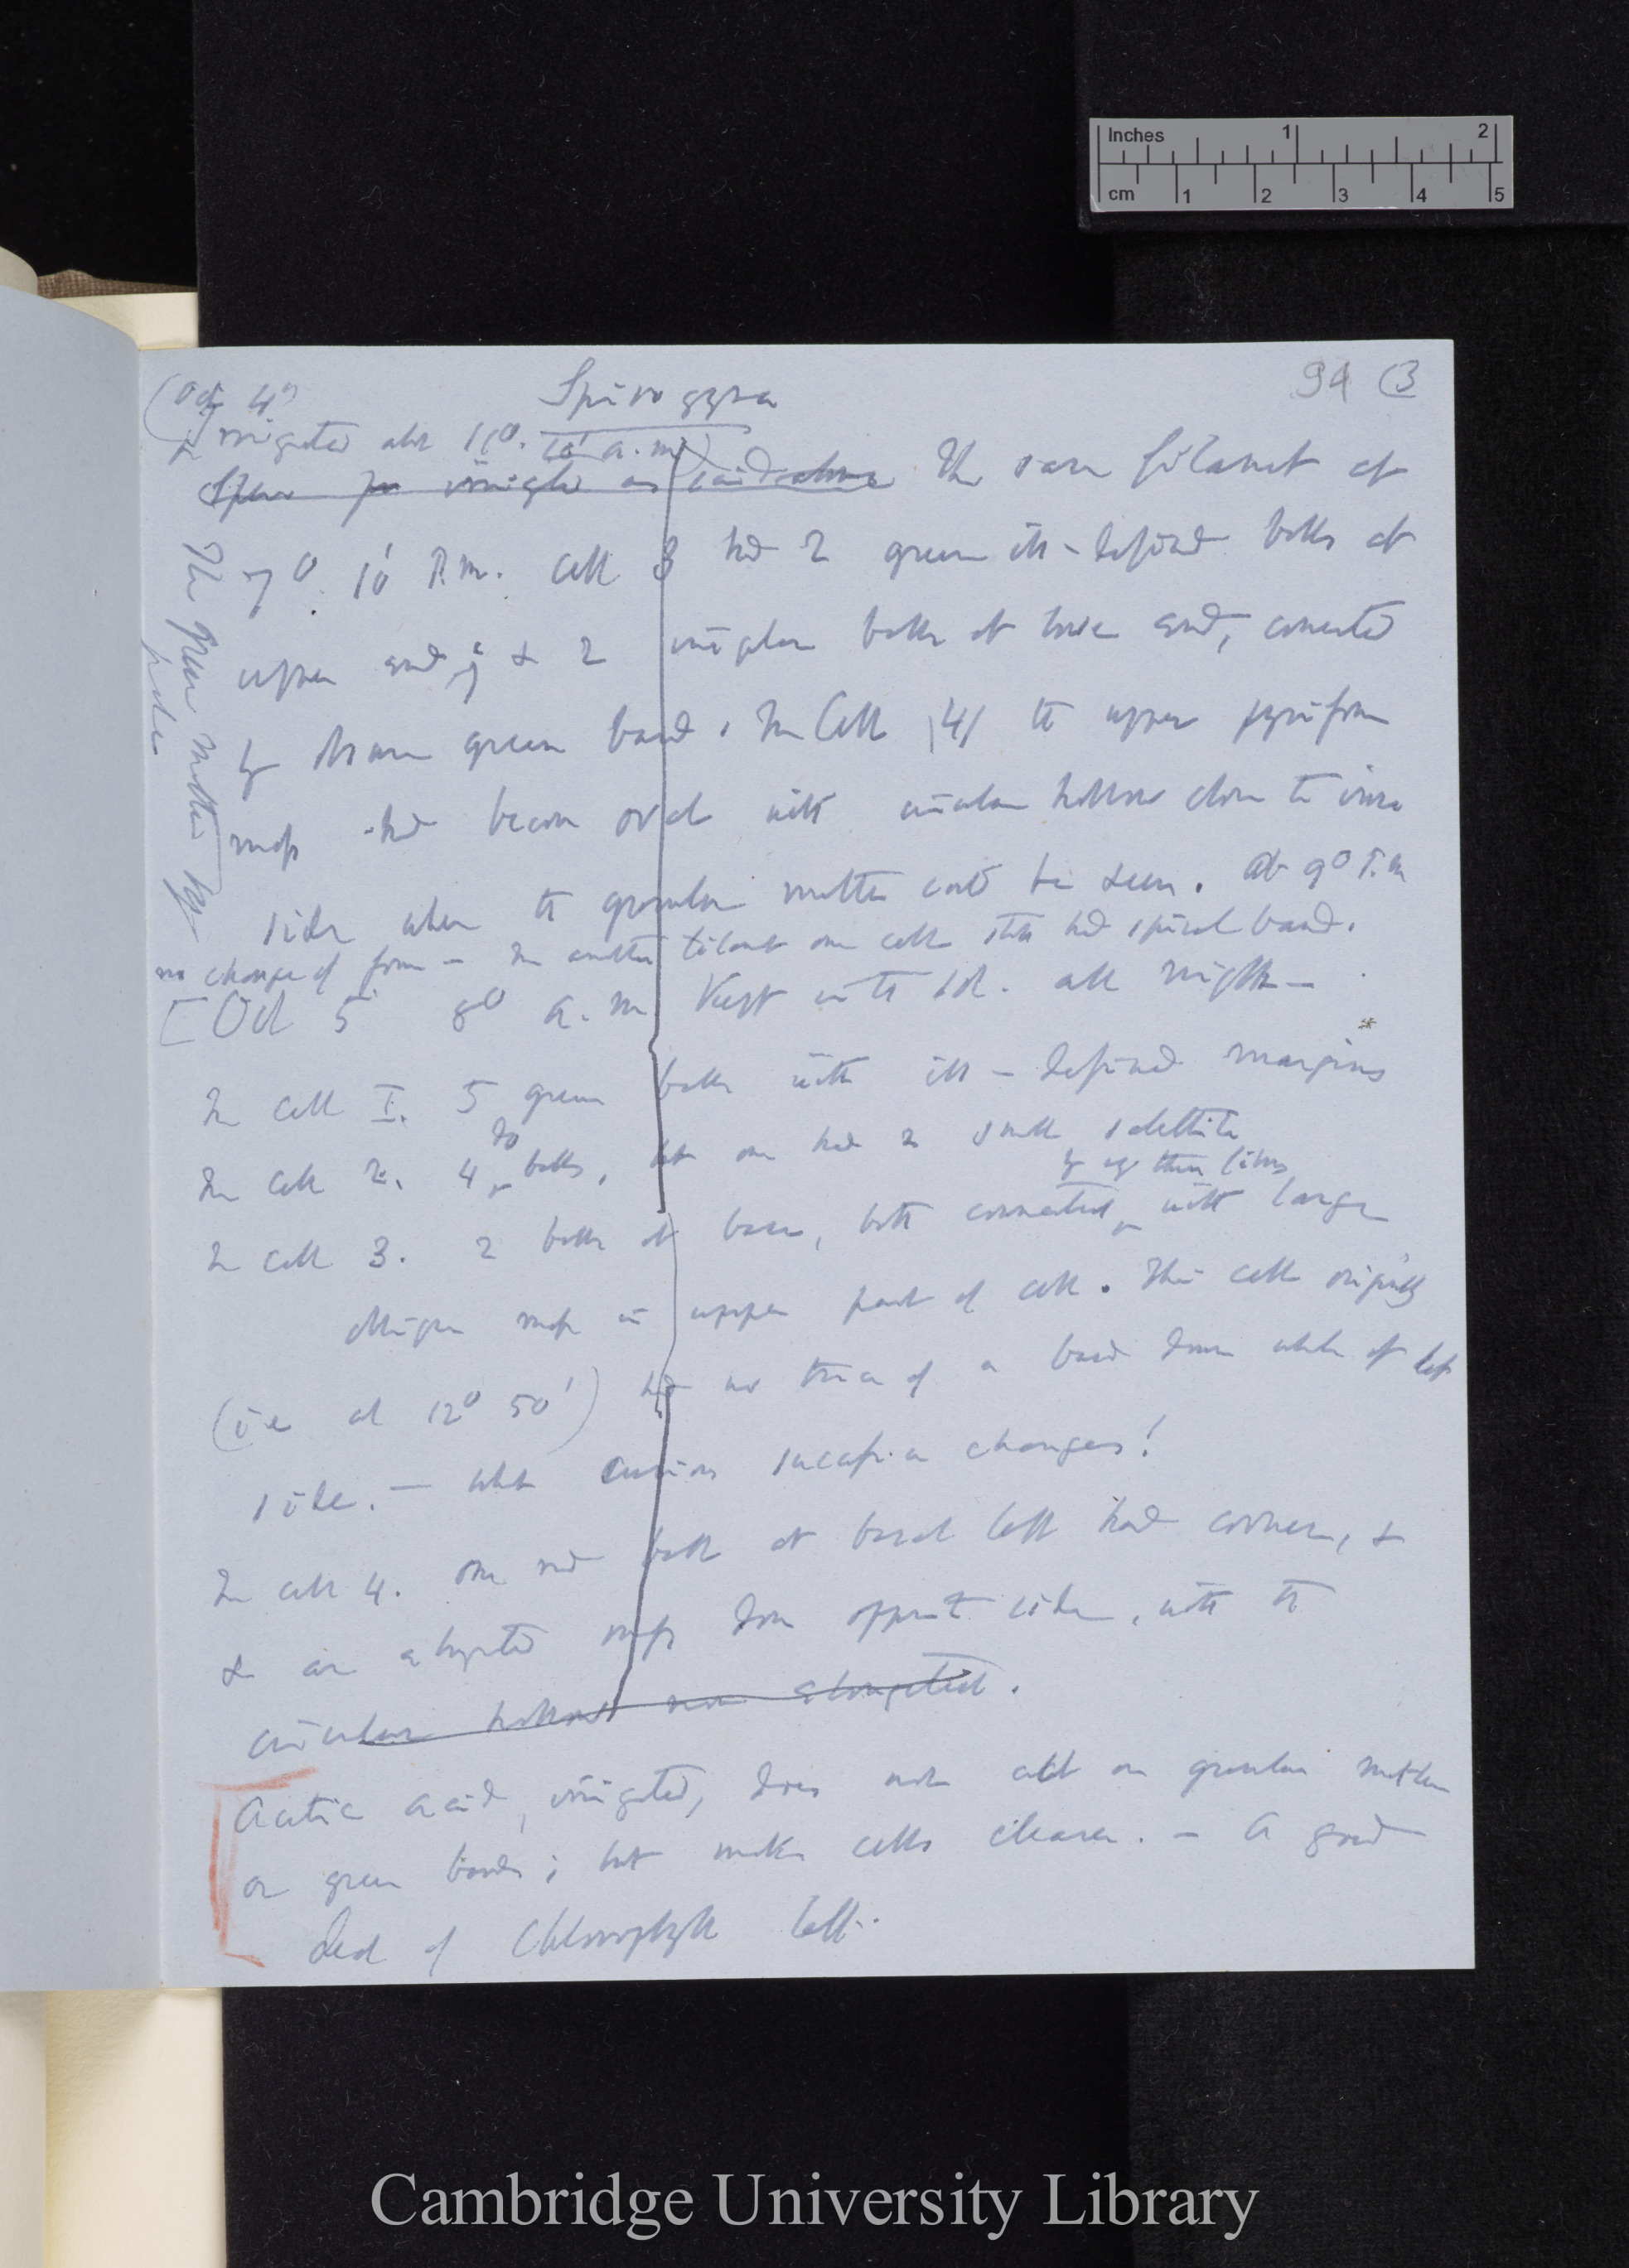 Inches 1 2
cm 1 2 3 4 5
94 (3
Spirogyra
(Oct 4th
irrigated abt 11° 10' a.m)
irrigated as said above The same filament at
7°. 10' P.m. Cell 3 had 2 green ill-defined balls at
upper end, & 2 balls at lower end, connected
by green band. In Cell (4) the upper pyriform
mass had become oval with circular hollow close to inner
side where the granular matter could be seen. At 9° P.m
no change of form — In another filament one cell still had spiral band.
[Oct 5 8° a.m Kept in the sol. all night —
In cell I. 5 green balls with ill-defined margins
In cell 2. 4 do balls, but one had 2 small satellites
In cell 3. 2 balls at base, both connected by thin lines with large
mass in upper part of cell. This cell originally
(ie at 12° 50') had no trace of a band down whole of left
side. — What curious changes!
In cell 4. one red ball at basal left hand corner, &
& an elongated mass down opposite side, with the
circular hollow now elongated.
Acetic acid, irrigated, does not act on granular matter
or green bands; but makes cells clearer. — A good
deal of Chlorophyll left.
The green matter
Cambridge University Library